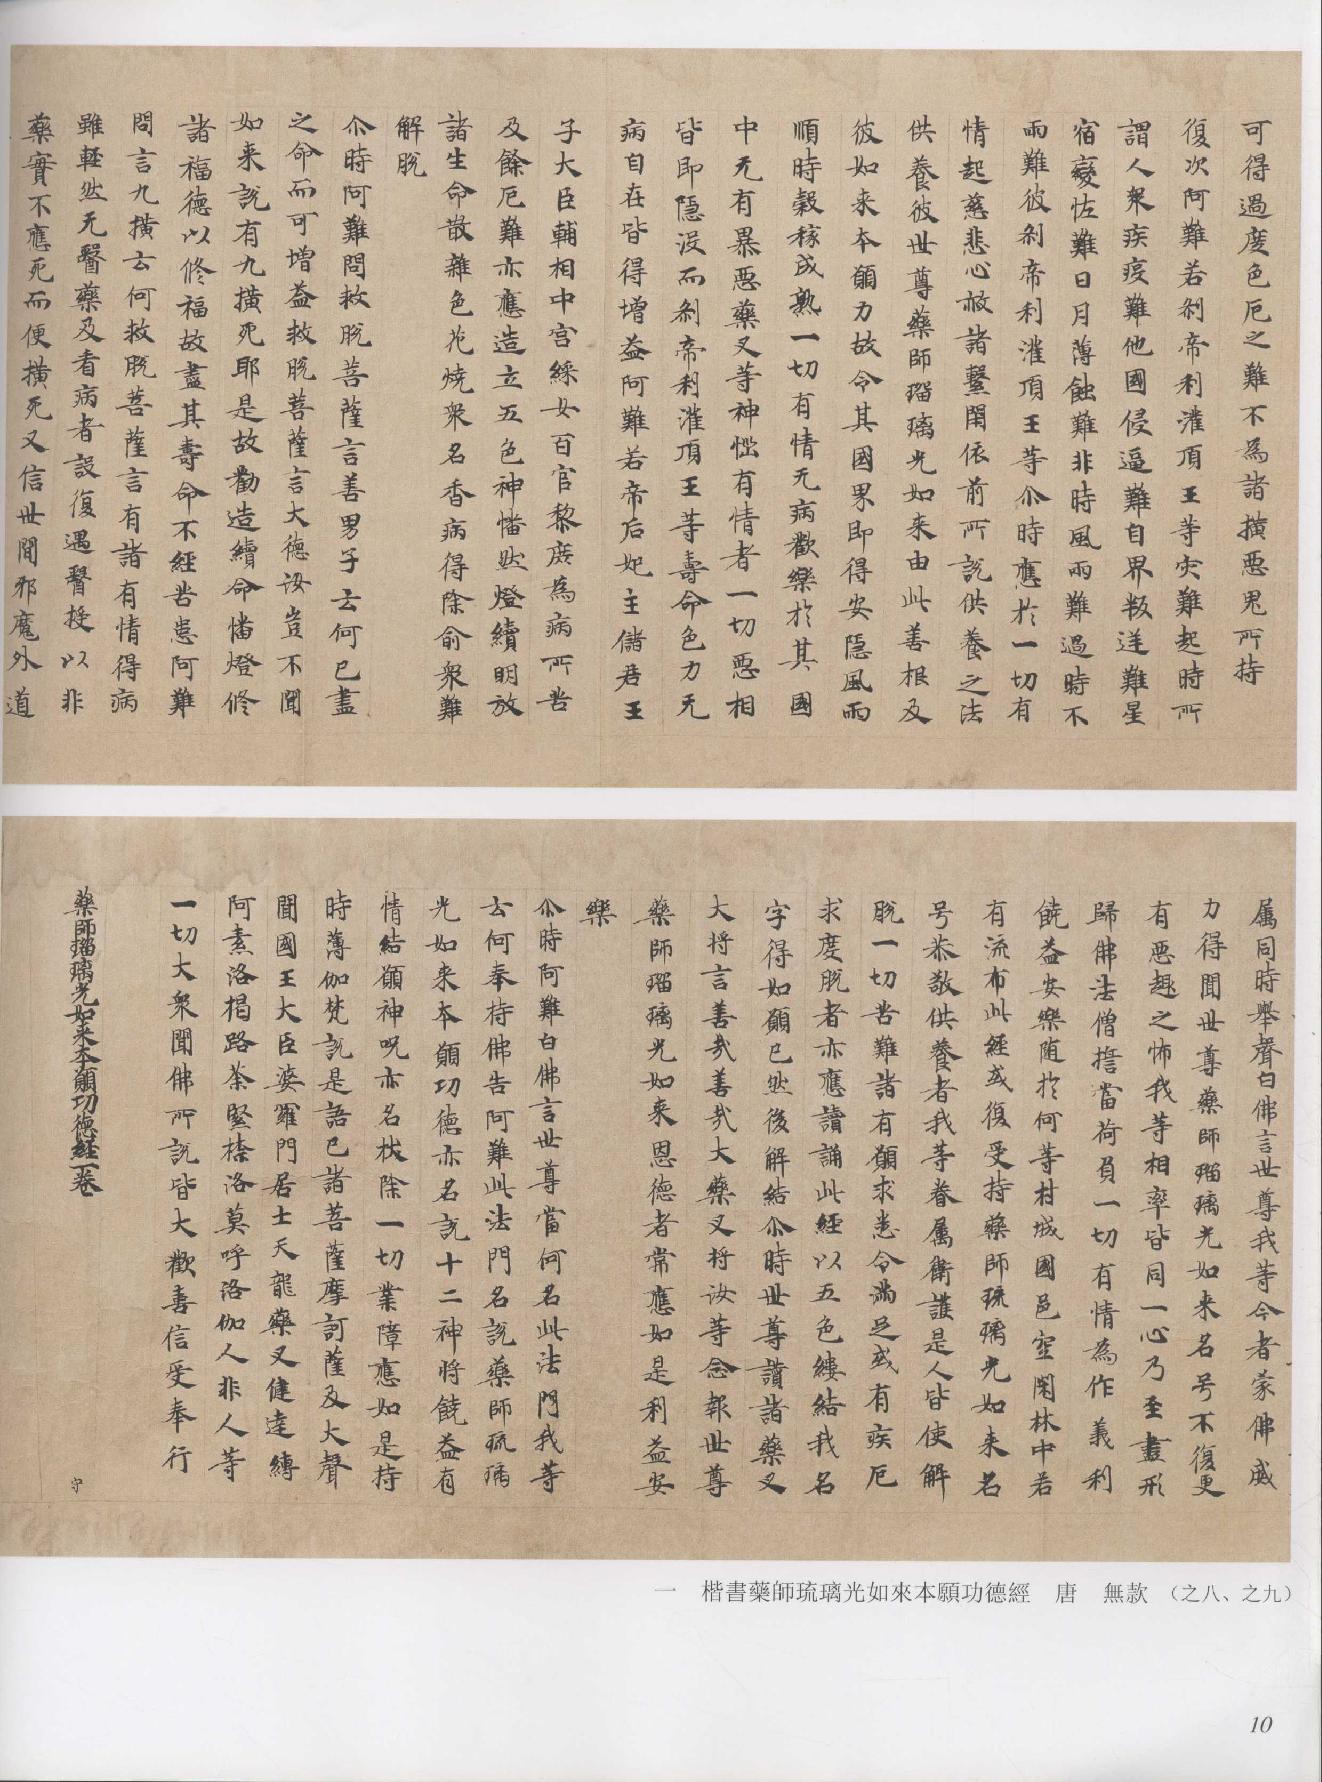 可得過度危厄之難不為諸橫惡鬼所持
復次阿難若剎帝利灌頂王等灾難起時所
謂人衆疾疫難他國侵逼難自界叛逆難星
宿變恠難日月薄蝕難非時風雨難過時不
雨難彼剎帝利灌頂王等尒時應於一切有
情起慈悲心赦諸繫閇依前所說供養之法
供養彼世尊藥師瑠璃光如来由此善根及
彼如来本願力故令其國界即得安隱風雨
順時穀稼成熟一切有情无病歡樂於其國
中无有暴惡藥叉等神惱有情者一切惡相
皆即隱沒而剎帝利灌頂王等壽命色力无
病自在皆得增益阿難若帝后妃主儲君王
子大臣輔相中宮綵女百官黎庶為病所苦
及餘厄難亦應造立五色神幡然燈續明放
諸生命散雜色花燒衆名香病得除俞衆難
解脫
尒時阿難問救脫菩薩言善男子云何已盡
之命而可增益救脫菩薩言大德汝豈不聞
如来說有九橫死耶是故勸造續命幡燈修
諸福德以修福故盡其壽命不經苦患阿難
問言九橫云何救脫菩薩言有諸有情得病
雖輕然无醫藥及看病者設復遇醫授以非
藥實不應死而便橫死又信世間邪魔外道
屬同時舉聲白佛言世尊我等今者蒙佛威
力得聞世尊藥師瑠璃光如来名号不復更
有惡趣之怖我等相率皆同一心乃至盡形
歸佛法僧擔當荷負一切有情為作義利
饒益安樂随於何等村城國邑空閑林中若
有流布此經或復受持藥師琉璃光如来名
号恭敬供養者我等眷屬衛護是人皆使解
脫一切苦難諸有願求悉令滿足或有疾厄
求度脫者亦應讀誦此經以五色縷結我名
字得如願已然後解結尒時世尊讚諸藥叉
大將言善哉善哉大藥叉將汝等念報世尊
藥師瑠璃光如来恩德者常應如是利益安
樂
尒時阿難白佛言世尊當何名此法門我等
云何奉持佛告阿難此法門名說藥師琉璃
光如来本願功德亦名說十二神將饒益有
情結願神呪亦名拔除一切業障應如是持
時薄伽梵說是語已諸菩薩摩訶薩及大聲
聞國王大臣婆羅門居士天龍藥叉健達縛
阿素洛揭路荼緊捺洛莫呼洛伽人非人等
一切大衆聞佛所說皆大歡喜信受奉行
藥師瑠璃光如来本願功德經一卷
守
一　楷書藥師琉璃光如來本願功德經　唐　無款　（之八、之九）
10